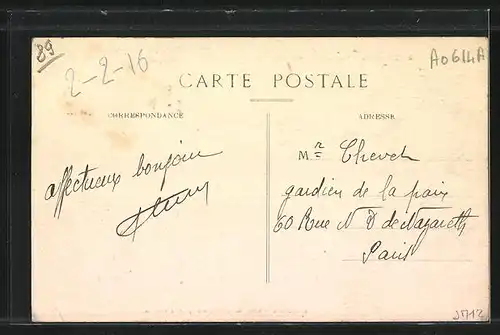 89
2-2-16
A0614A
CARTE POSTALE
CORRESPONDANCE
ADRESSE
Mr Chevet
affectueux bonjour
gardien de la paix
60 Rue N D de Nazareth
Paris